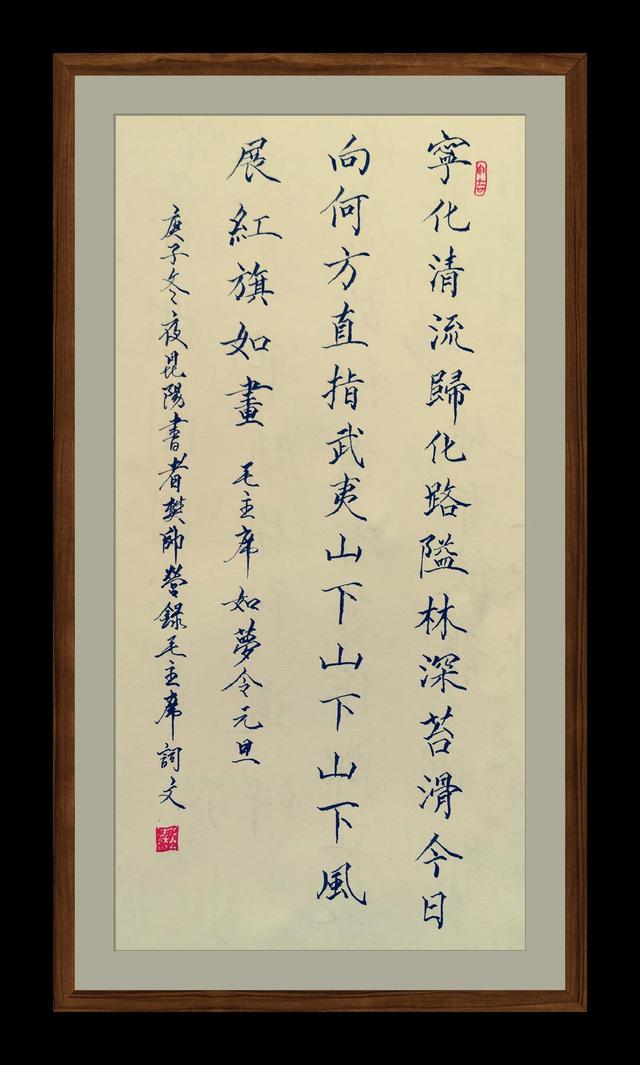 寧化清流歸化路隘林深苔滑今日
向何方直指武夷山下山下山下風
展紅旗如畫 毛主席如夢令元旦
庚子冬夜昆陽書者樊帥營錄毛主席詞文